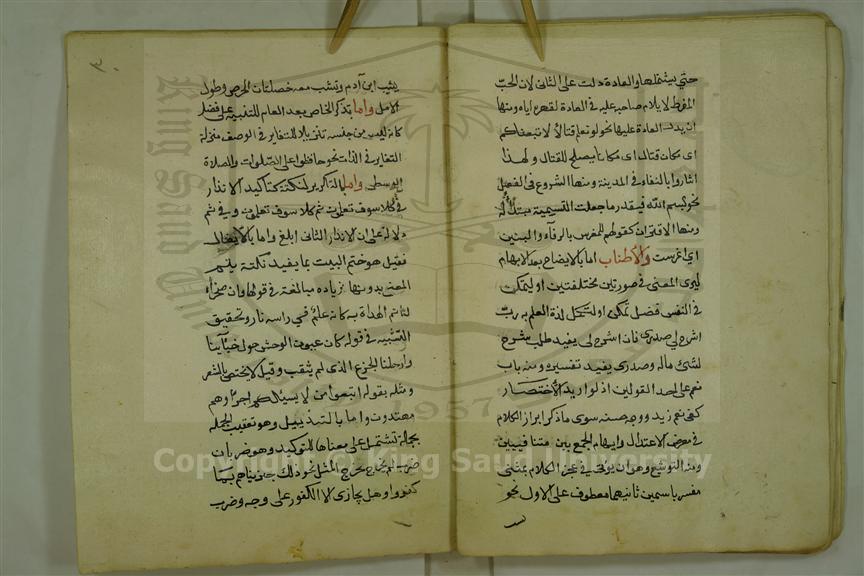 حتى يشغلها والعادة دلت على الثاني لان الحب
المفرط لا يلام صاحبه عليه في العادة لقهره اياه ومنها
ان يدل العادة عليها نحو لو نعلم قتالا لاتبعناكم
اى مكان قتال اى مكانا يصلح للقتال ولهذا
اشاروا بالبقاء في المدينة ومنها الشروع في الفعل
نحو بسم الله فيقدر ما جعلت التسمية مبتدأ له
ومنها الاقتران كقولهم للمعرس بالرفاء والبنين
اى اعرست والاطناب اما بالايضاح بعد الابهام
ليرى المعنى في صورتين مختلفتين او ليتمكن
في النفس فضل تمكن او لتكمل لذة العلم به رب
اشرح لي صدري فان اشرح لي يفيد طلب شرح
لشئ ماله وصدري يفيد تفسيره ومنه باب
نعم على احد القولين اذ لو اريد الاختصار
كفى نعم زيد ووجه حسنه سوى ما ذكر ابراز الكلام
في معرض الاعتدال وايهام الجمع بين متنافيين
ومنه التوشيع وهو ان يؤتى في عجز الكلام بمثنى
مفسر باسمين ثانيهما معطوف على الاول نحو
٣٠
يشيب ابن آدم وتشب معه خصلتان الحرص وطول
الامل واما بذكر الخاص بعد العام للتنبيه على فضل
كانه ليس من جنسه تنزيلا للتغاير في الوصف منزلة
التغاير في الذات نحو حافظوا على الصلوات والصلاة
الوسطى واما بالتكرير لنكتة كتأكيد الانذار
في كلا سوف تعلمون ثم كلا سوف تعلمون وفي ثم
دلالة على ان الانذار الثاني ابلغ واما بالايغال
فقيل هو ختم البيت بما يفيد نكتة يتم
المعنى بدونها كزيادة مبالغة في قولها وان صخرا
لتأتم الهداة به كانه علم في راسه نار وتحقيق
التشبيه في قوله كان عيون الوحش حول خبائنا
وارحلنا الجزع الذي لم يثقب وقيل لا يختص بالشعر
ومثله بقوله اتبعوا من لا يسئلكم اجرا وهم
مهتدون واما بالتذييل وهو تعقيب الجملة
بجملة تشتمل على معناها للتوكيد وهو ضربان
ضرب لم يخرج مخرج المثل نحو ذلك جزيناهم بما
كفروا وهل يجازى الا الكفور على وجه وضرب
King Saud University
1957
Copyright © King Saud University